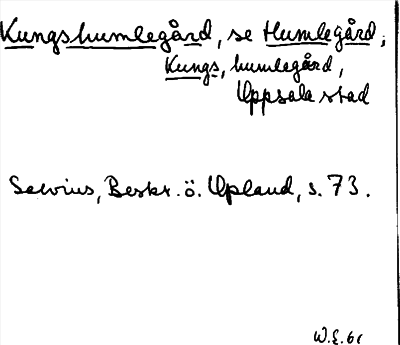 Kungshumlegård, se Humlegård,
Kungs, humlegård,
Uppsala stad
Salvius, Beskr. ö. Upland, s. 73.
W.E. 61